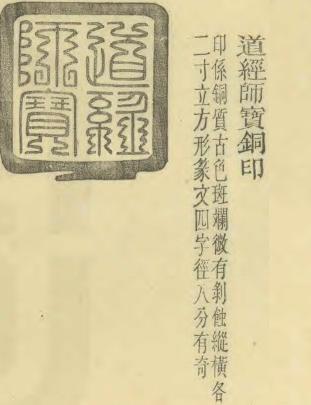 道經師寶銅印
印係銅質古色斑斕微有剝蝕縱橫各
二寸立方形篆文四字徑八分有奇
道經
師寶